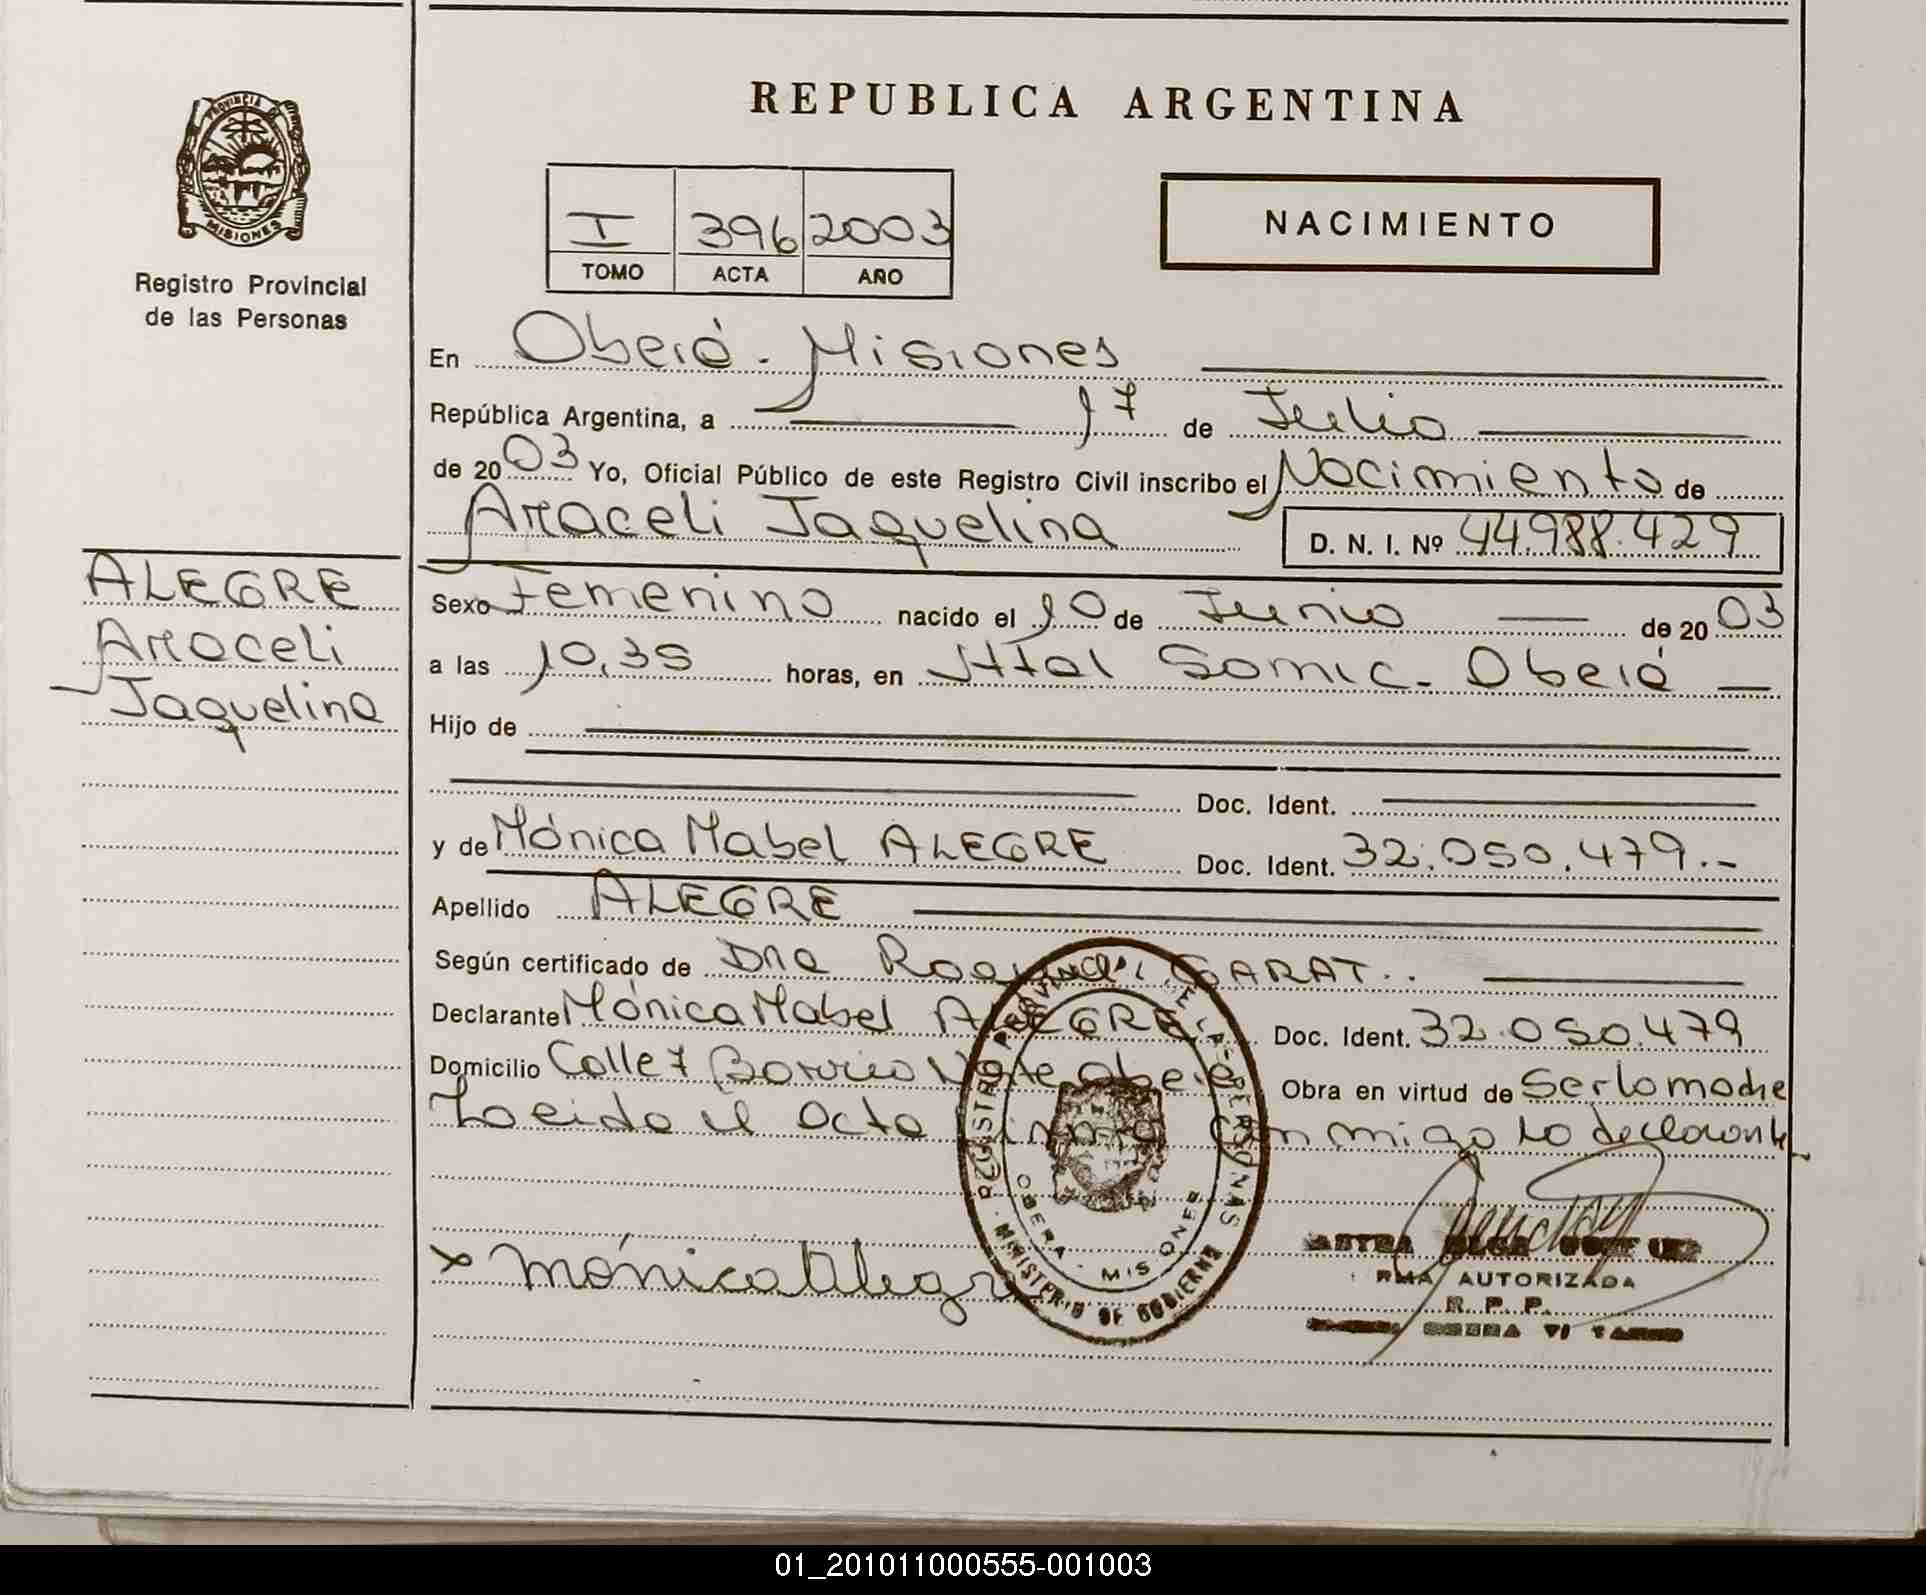 REPUBLICA ARGENTINA
PROVINCIA DE MISIONES
Registro Provincial
de las Personas
I 396 2003
TOMO ACTA AÑO
NACIMIENTO
En Oberá - Misiones
República Argentina, a 17 de Julio
de 2003 Yo, Oficial Público de este Registro Civil inscribo el Nacimiento de
Araceli Jaquelina
D. N. I. Nº 44.988.429
ALEGRE
Araceli
Jaquelina
Sexo Femenino nacido el 10 de Junio de 2003
a las 10,35 horas, en Htal Samic - Oberá
Hijo de
Doc. Ident.
y de Mónica Mabel ALEGRE Doc. Ident. 32.050.479.-
Apellido ALEGRE
Según certificado de Dra Raquel GARAT..
Declarante Mónica Mabel ALEGRE Doc. Ident. 32.050.479
Domicilio Calle 7 Barrio Norte Oberá Obra en virtud de Ser la madre
Leida el acta firma conmigo la declarante
REGISTRO PROVINCIAL DE LAS PERSONAS
OBERA - MISIONES
MINISTERIO DE GOBIERNO
x Mónica Alegre
AUTORIZADA
R. P. P.
01_201011000555-001003